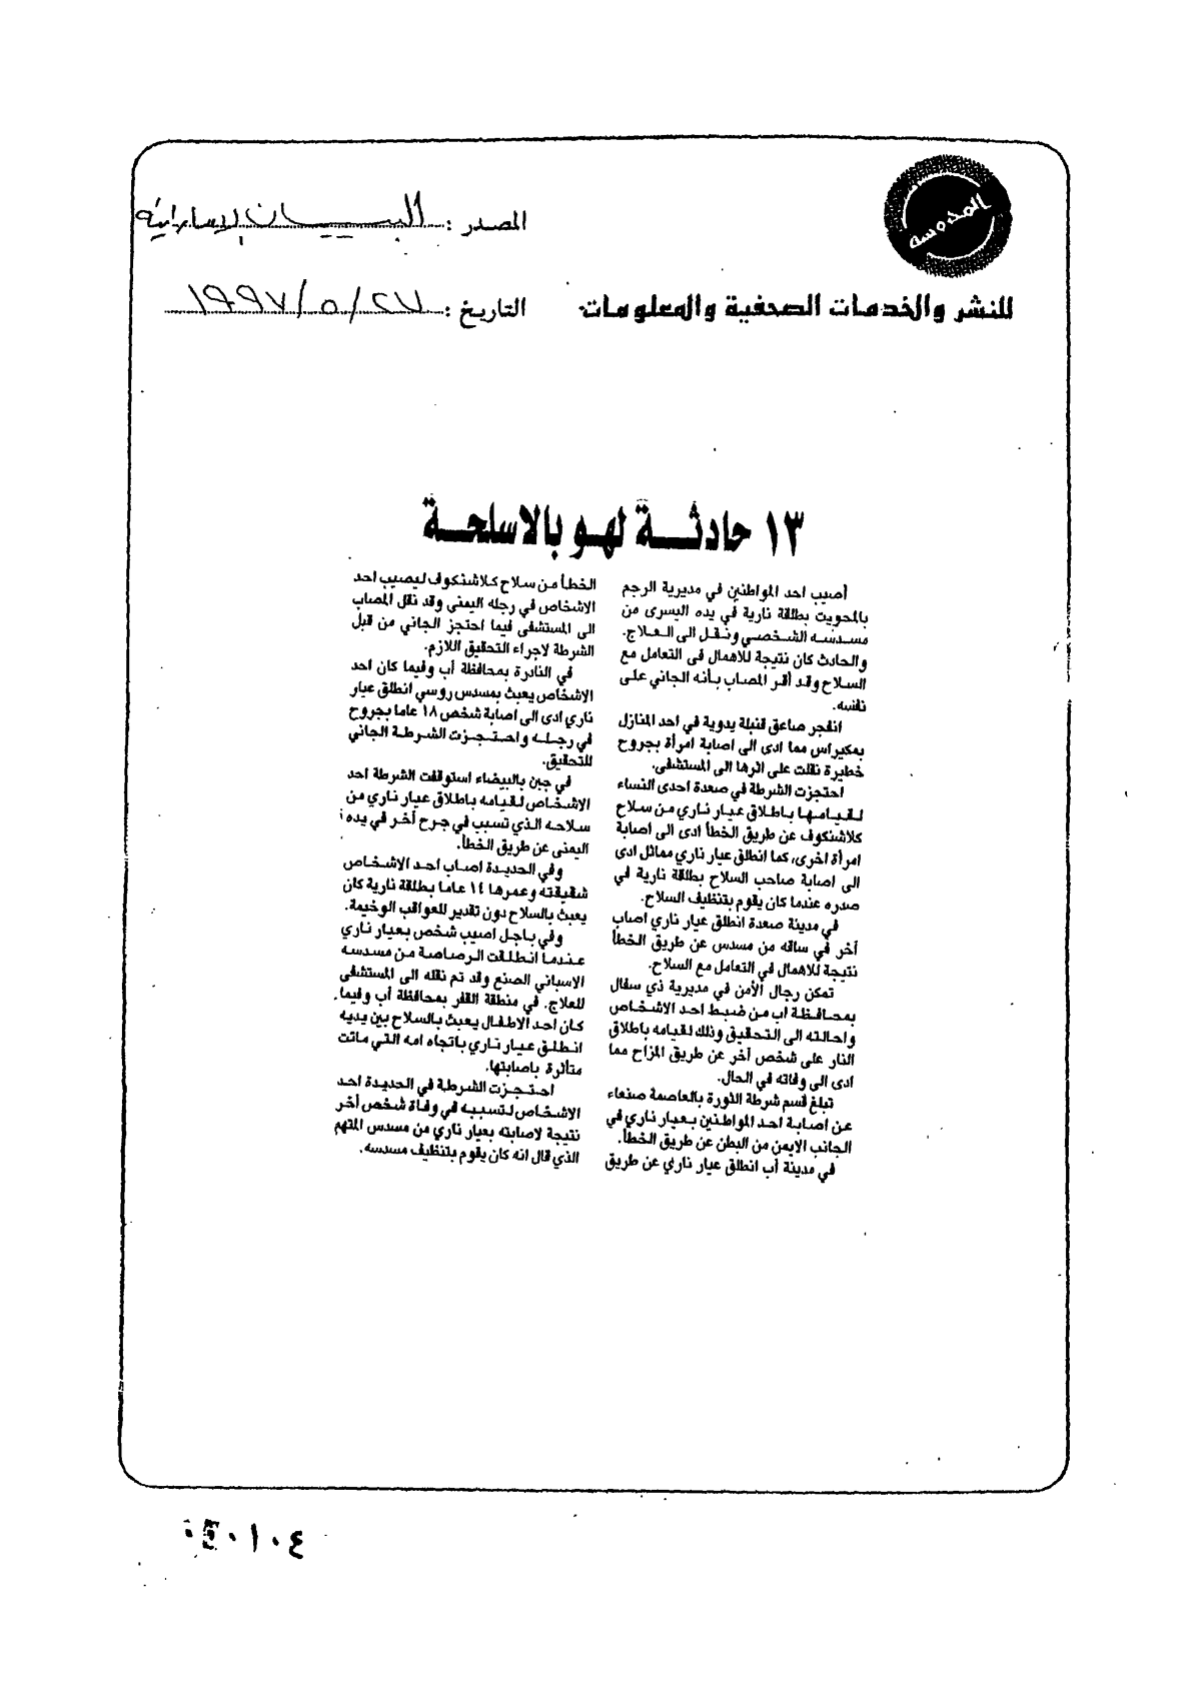 المدوسه
للنشر والخدمات الصحفية والمعلومات
المصدر : البيان الاماراتية
التاريخ : ٢٧ / ٥ / ١٩٩٧
١٣ حادثة لهو بالاسلحة
أصيب احد المواطنين في مديرية الرجم
بالمحويت بطلقة نارية في يده اليسرى من
مسدسه الشخصي ونقل الى العلاج.
والحادث كان نتيجة للاهمال في التعامل مع
السلاح وقد أقر المصاب بأنه الجاني على
نفسه.
انفجر صاعق قنبلة يدوية في احد المنازل
بمكيراس مما ادى الى اصابة امرأة بجروح
خطيرة نقلت على اثرها الى المستشفى.
احتجزت الشرطة في صعدة احدى النساء
لقيامها باطلاق عيار ناري من سلاح
كلاشنكوف عن طريق الخطأ ادى الى اصابة
امرأة اخرى، كما انطلق عيار ناري مماثل ادى
الى اصابة صاحب السلاح بطلقة نارية في
صدره عندما كان يقوم بتنظيف السلاح.
في مدينة صعدة انطلق عيار ناري اصاب
آخر في ساقه من مسدس عن طريق الخطأ
نتيجة للاهمال في التعامل مع السلاح.
تمكن رجال الأمن في مديرية ذي سفال
بمحافظة اب من ضبط احد الاشخاص
واحالته الى التحقيق وذلك لقيامه باطلاق
النار على شخص آخر عن طريق المزاح مما
ادى الى وفاته في الحال.
تبلغ قسم شرطة الثورة بالعاصمة صنعاء
عن اصابة احد المواطنين بعيار ناري في
الجانب الايمن من البطن عن طريق الخطأ.
في مدينة أب انطلق عيار ناري عن طريق
الخطأ من سلاح كلاشنكوف ليصيب احد
الاشخاص في رجله اليمنى وقد نقل المصاب
الى المستشفى فيما احتجز الجاني من قبل
الشرطة لاجراء التحقيق اللازم.
في النادرة بمحافظة أب وفيما كان احد
الاشخاص يعبث بمسدس روسي انطلق عيار
ناري ادى الى اصابة شخص ١٨ عاما بجروح
في رجله واحتجزت الشرطة الجاني
للتحقيق.
في جبن بالبيضاء استوقفت الشرطة احد
الاشخاص لقيامه باطلاق عيار ناري من
سلاحه الذي تسبب في جرح آخر في يده
اليمنى عن طريق الخطأ.
وفي الحديدة اصاب احد الاشخاص
شقيقته وعمرها ١٤ عاما بطلقة نارية كان
يعبث بالسلاح دون تقدير للعواقب الوخيمة.
وفي باجل اصيب شخص بعيار ناري
عندما انطلقت الرصاصة من مسدسه
الاسباني الصنع وقد تم نقله الى المستشفى
للعلاج. في منطقة القفر بمحافظة أب وفيما
كان احد الاطفال يعبث بالسلاح بين يديه
انطلق عيار ناري باتجاه امه التي ماتت
متأثرة باصابتها.
احتجزت الشرطة في الحديدة احد
الاشخاص لتسببه في وفاة شخص آخر
نتيجة لاصابته بعيار ناري من مسدس المتهم
الذي قال انه كان يقوم بتنظيف مسدسه.